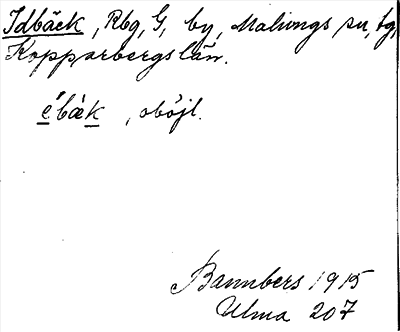 Idbäck, Rbg, G, by, Malungs sn, tg,
Kopparbergs län.
e´bä`k, oböjl.
Bannbers 1915
Ulma 207